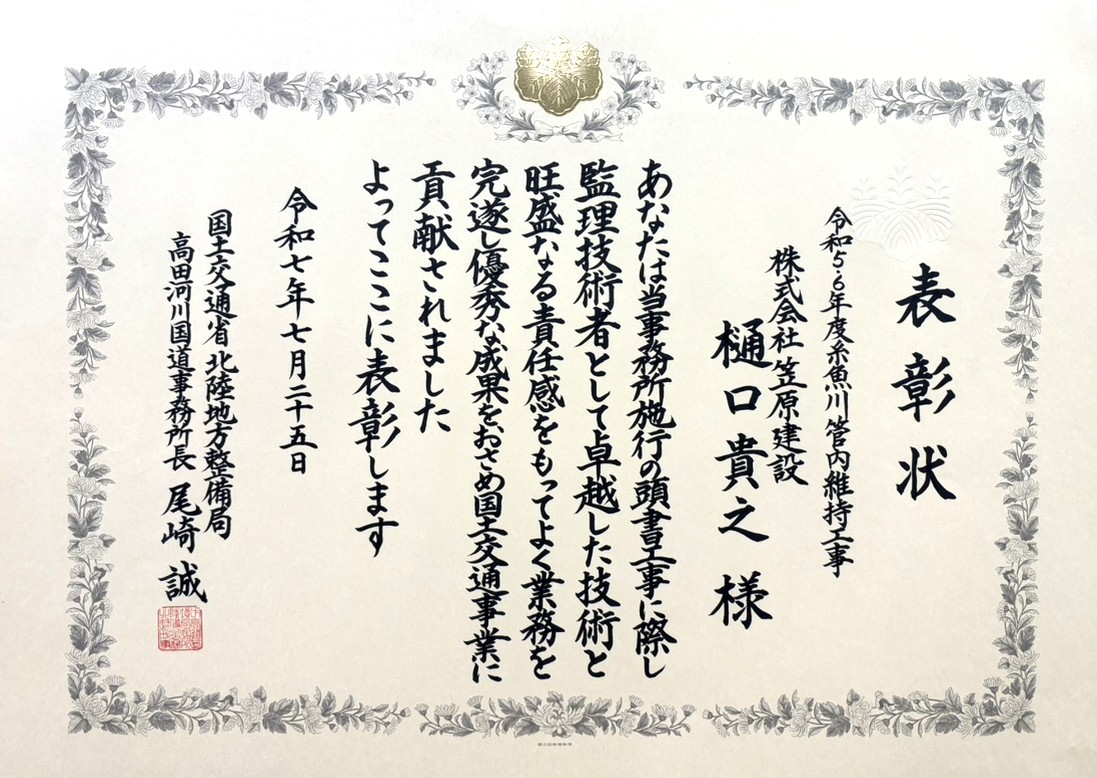 表彰状
令和5・6年度糸魚川管内維持工事
株式会社 笠原建設
樋口貴之 様
あなたは当事務所施行の頭書工事に際し
監理技術者として卓越した技術と
旺盛なる責任感をもってよく業務を
完遂し優秀な成果をおさめ国土交通事業に
貢献されました
よってここに表彰します
令和七年七月二十五日
国土交通省 北陸地方整備局
高田河川国道事務所長 尾崎 誠